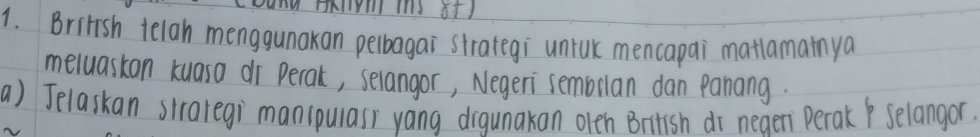 1. British telah menggunakan pelbagai strategi untuk mencapai matlamatnya
meluaskan kuasa di Perak, Selangor, Negeri Sembilan dan Pahang.
a) Jelaskan strategi manipulasi yang digunakan oleh British di negeri Perak & Selangor.